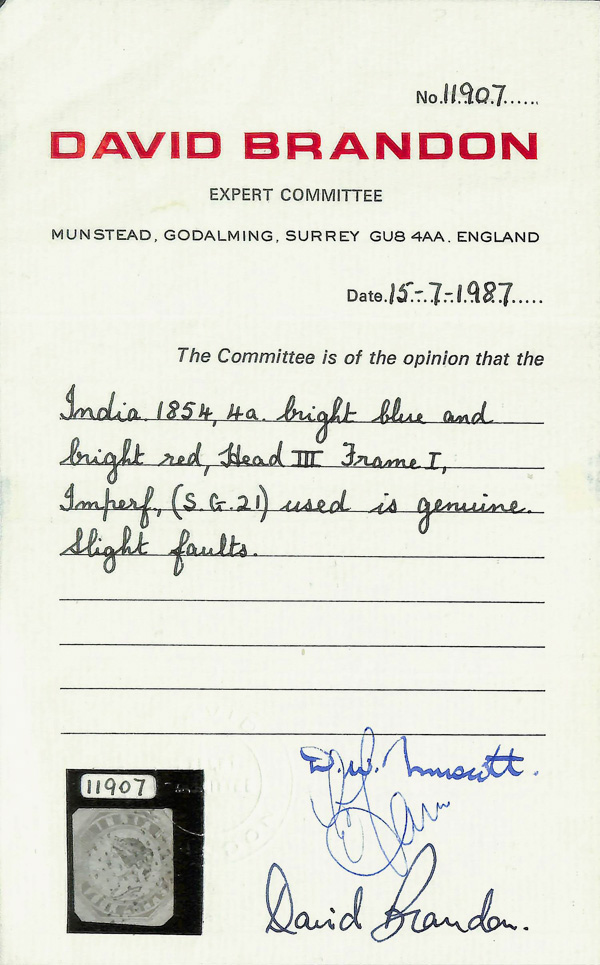 No. 11907
DAVID BRANDON
EXPERT COMMITTEE
MUNSTEAD, GODALMING, SURREY GU8 4AA. ENGLAND
Date. 15-7-1987
The Committee is of the opinion that the
India 1854, 4a. bright blue and
bright red, Head III Frame I,
Imperf, (S.G.21) used is genuine.
Slight faults.
D.W.
11907
David Brandon.